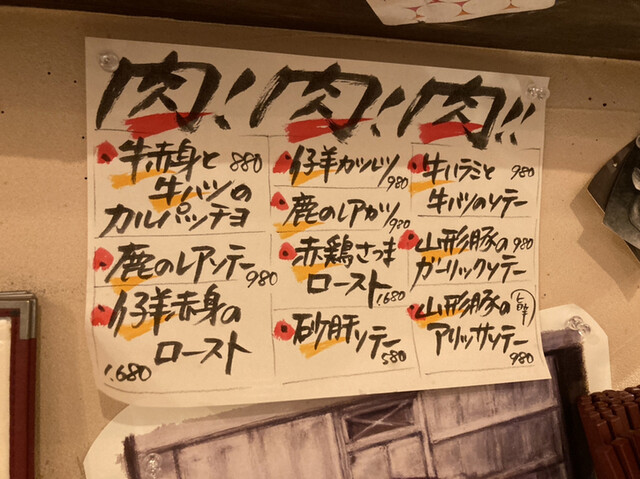 肉! 肉! 肉!!
牛赤身と
牛ハツの
カルパッチョ
880
鹿のレアソテー
980
仔羊赤身の
ロースト
1.680
仔羊カツレツ
980
鹿のレアカツ
980
赤鶏さつま
ロースト
1.680
砂肝ソテー
580
牛ハラミと
牛ハツのソテー
980
山形豚の
ガーリックソテー
980
山形豚の
アリッサソテー
980